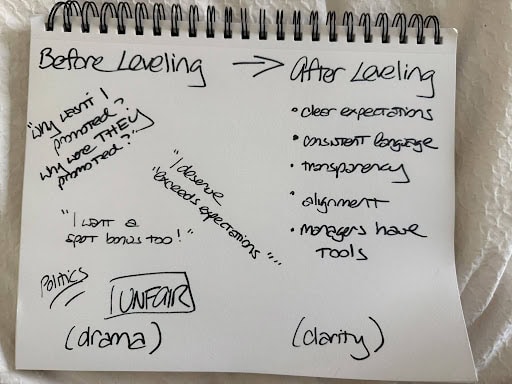 Before Leveling → After Leveling
"Why wasn't I
promoted?
Why were THEY
promoted?"
"I deserve
"exceeds expectations"....
"I want a
spot bonus too!"
Politics
UNFAIR
(drama)
• clear expectations
• consistent language
• transparency
• alignment
• managers have
tools
(clarity)